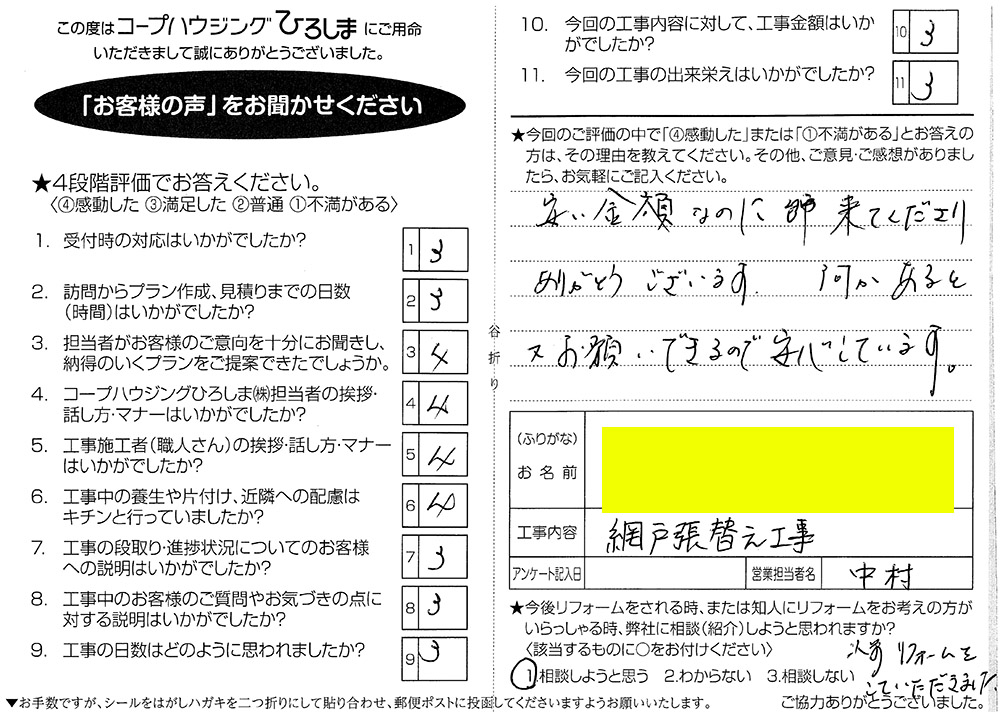 この度はコープハウジングひろしまにご用命
いただきまして誠にありがとうございました。
「お客様の声」をお聞かせください
★4段階評価でお答えください。
〈④感動した ③満足した ②普通 ①不満がある〉
1. 受付時の対応はいかがでしたか?
1 3
2. 訪問からプラン作成、見積りまでの日数
(時間)はいかがでしたか?
2 3
3. 担当者がお客様のご意向を十分にお聞きし、
納得のいくプランをご提案できたでしょうか。
3 4
4. コープハウジングひろしま㈱担当者の挨拶・
話し方・マナーはいかがでしたか?
4 4
5. 工事施工者(職人さん)の挨拶・話し方・マナー
はいかがでしたか?
5 4
6. 工事中の養生や片付け、近隣への配慮は
キチンと行っていましたか?
6 4
7. 工事の段取り・進捗状況についてのお客様
への説明はいかがでしたか?
7 3
8. 工事中のお客様のご質問やお気づきの点に
対する説明はいかがでしたか?
8 3
9. 工事の日数はどのように思われましたか?
9 3
谷折り
10. 今回の工事内容に対して、工事金額はいか
がでしたか?
10 3
11. 今回の工事の出来栄えはいかがでしたか?
11 3
★今回のご評価の中で「④感動した」または「①不満がある」とお答えの
方は、その理由を教えてください。その他、ご意見・ご感想がありまし
たら、お気軽にご記入ください。
安い金額なのに 来てくださり
ありがとうございます. 何かあると
又お願いできるので安心しています。
(ふりがな)
お名前
工事内容 網戸張替え工事
アンケート記入日 営業担当者名 中村
★今後リフォームをされる時、または知人にリフォームをお考えの方が
いらっしゃる時、弊社に相談(紹介)しようと思われますか?
〈該当するものに○をお付けください〉
1.相談しようと思う 2.わからない 3.相談しない
リフォームを
していただきました
ご協力ありがとうございました。
▼お手数ですが、シールをはがしハガキを二つ折りにして貼り合わせ、郵便ポストに投函してくださいますようお願いいたします。